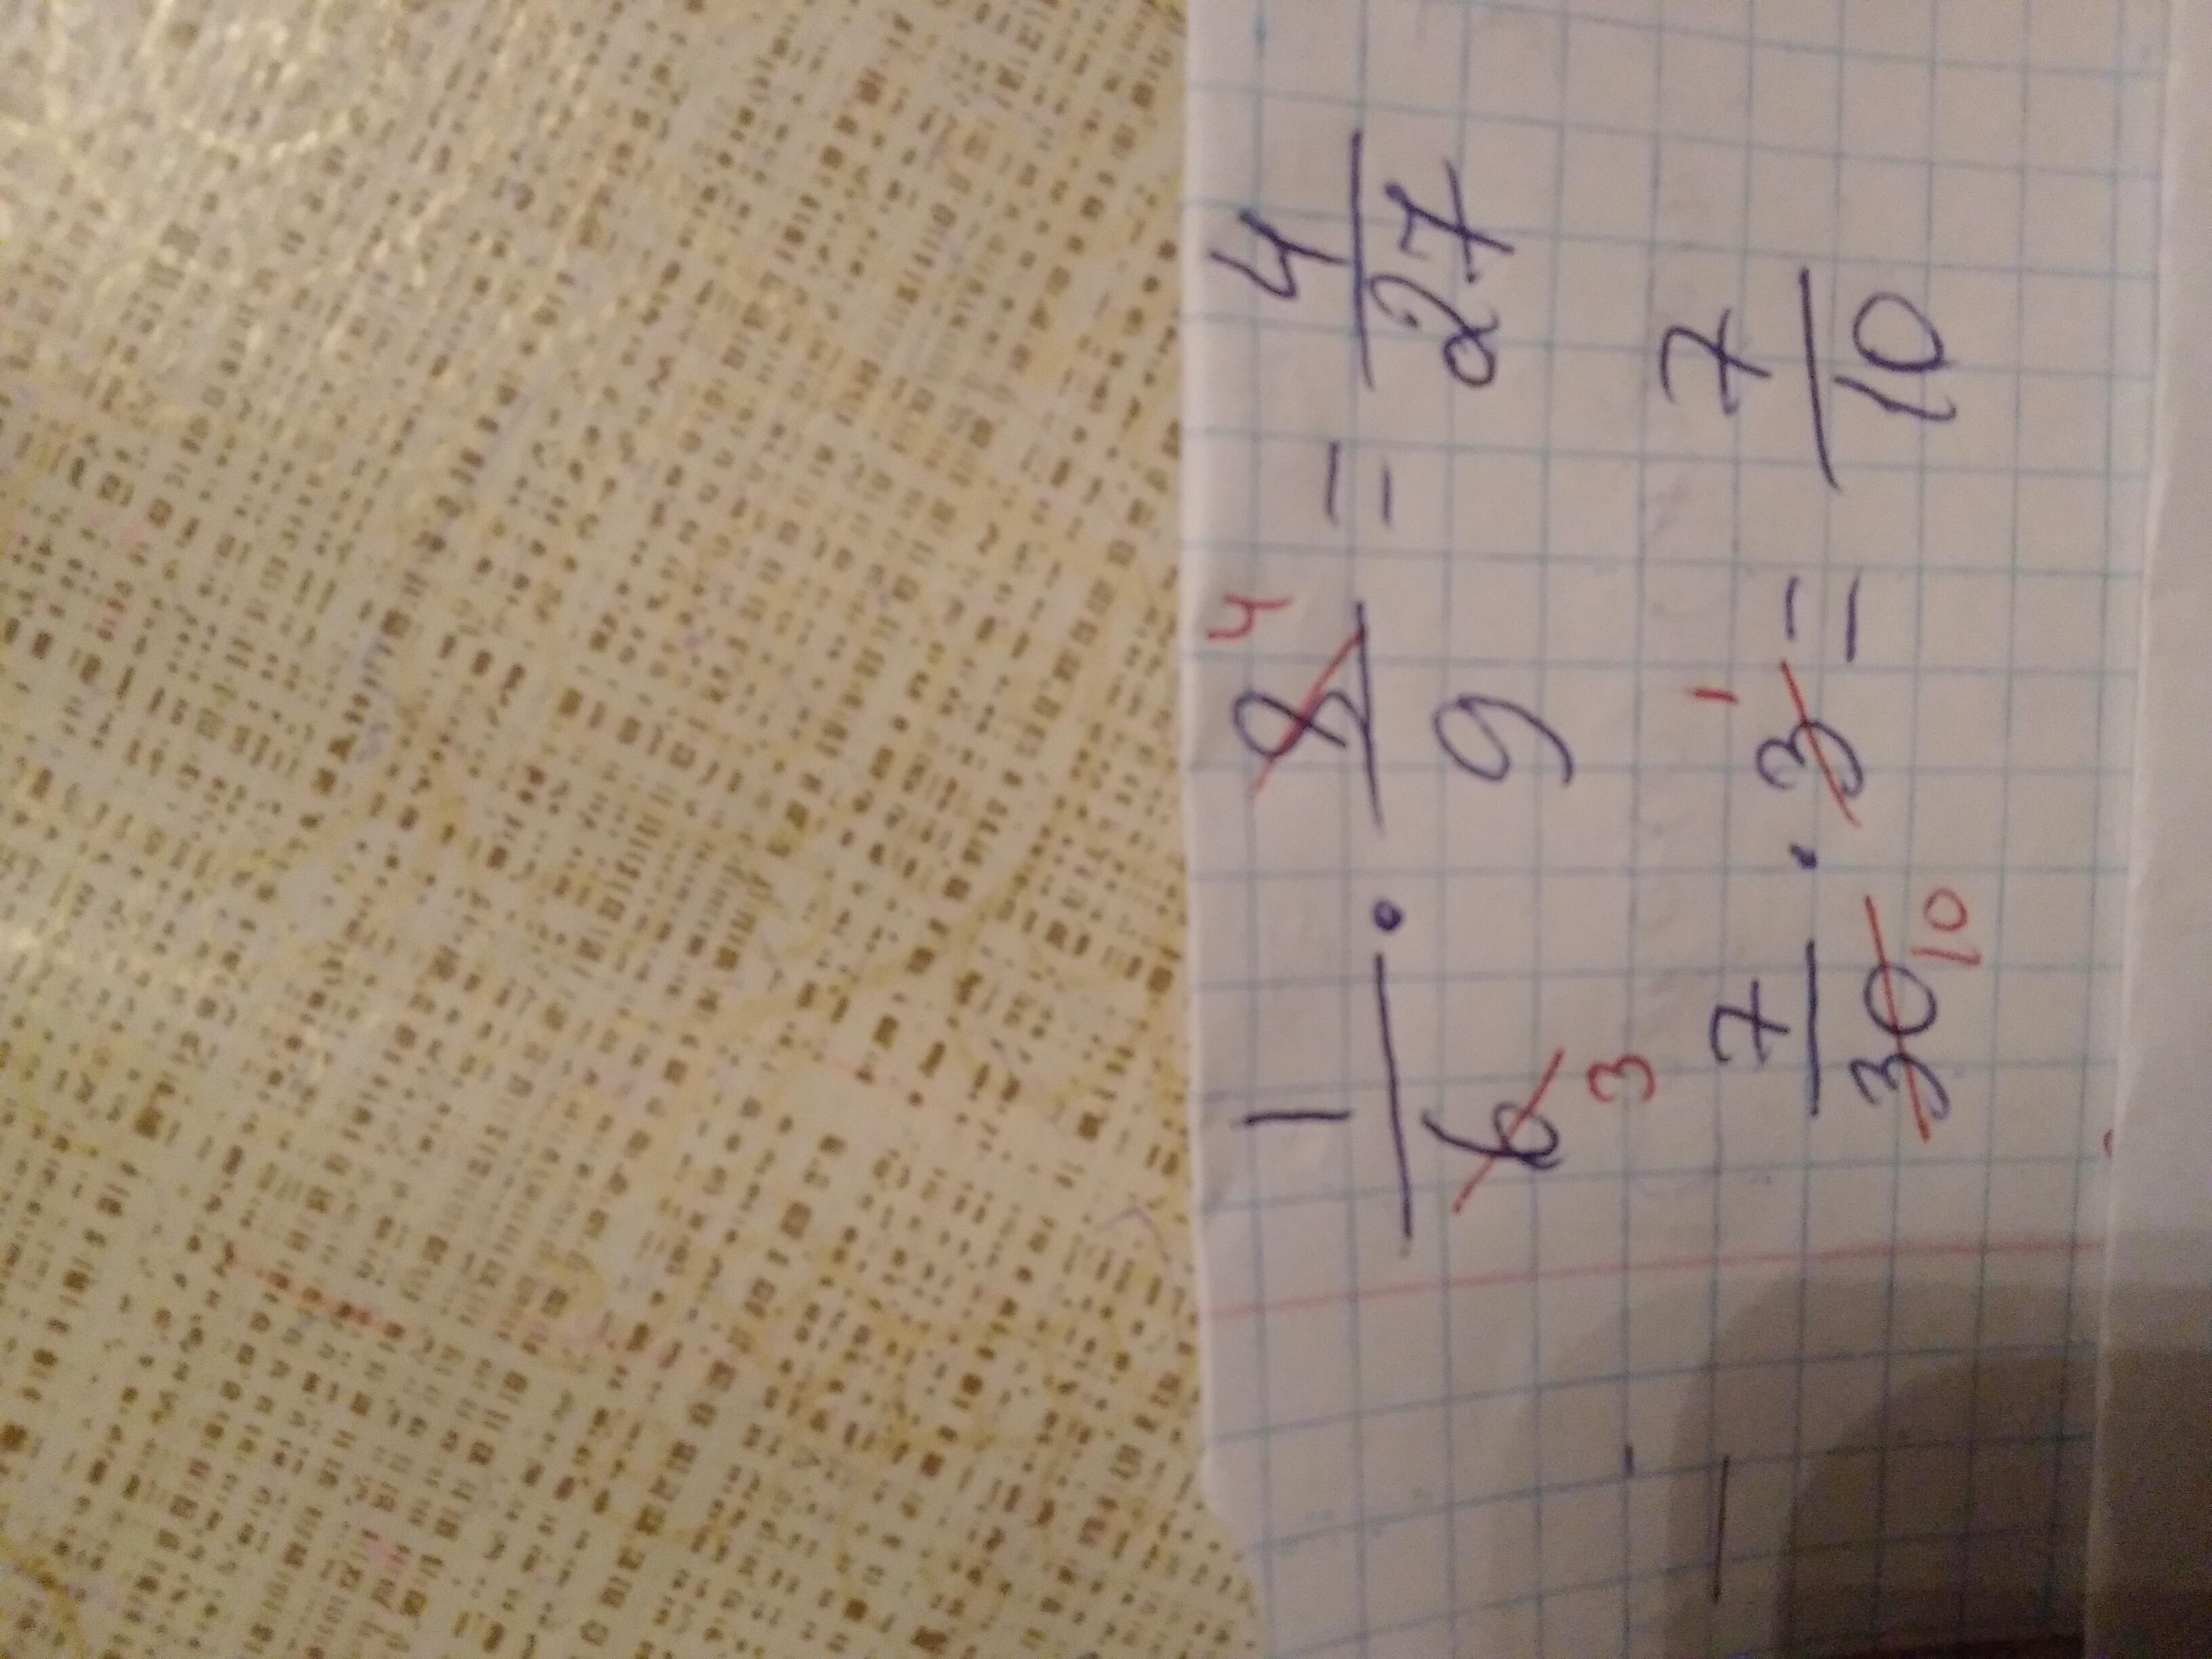 1/6 3 · 8/9 4 = 4/27
7/30 10 · 3 1 = 7/10